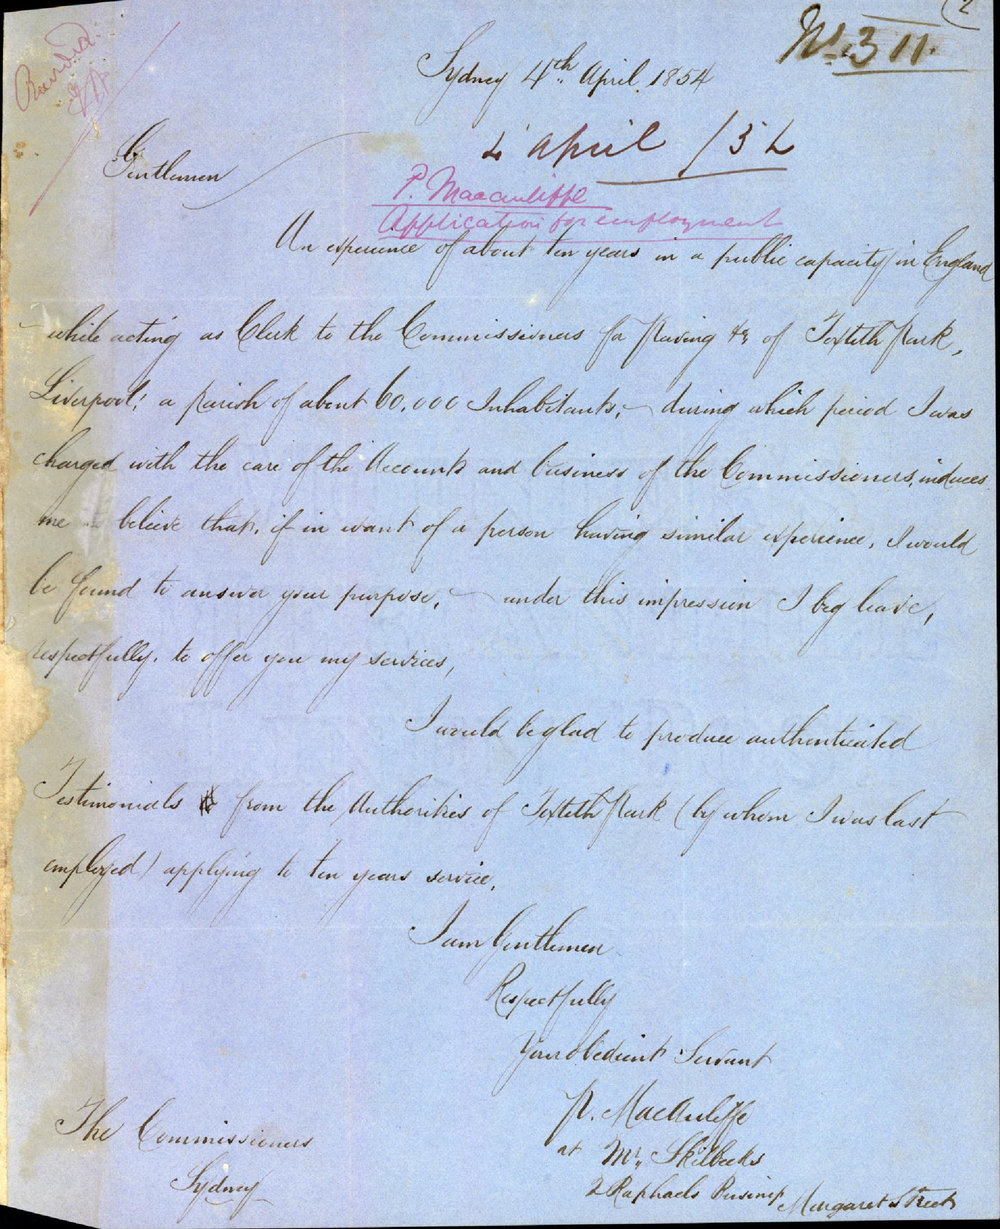 2
No. 311.
Sydney 4th April. 1854
4 April /54
Gentlemen
P. Macauliffe
Application for employment
An experience of about ten years in a public capacity in England
while acting as Clerk to the Commissioners for Paving &c of Toxteth Park,
Liverpool, a parish of about 60,000 Inhabitants, – during which period I was
charged with the care of the Accounts and business of the Commissioners, induces
me believe that, if in want of a person having similar experience, I would
be found to answer your purpose, – under this impression I beg leave,
respectfully, to offer you my services,
I would be glad to produce authenticated
Testimonials from the Authorities of Toxteth Park (by whom I was last
employed) applying to ten years service.
I am Gentlemen
Respectfully
Your Obedient Servant
P. MacAuliffe
at Mr. Skilbecks
2 Raphaels Margaret Street
The Commissioners
Sydney